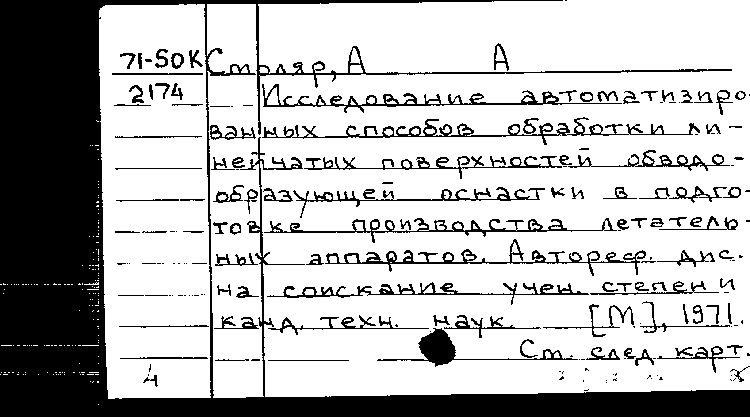 71-50К Столяр, А А
2174 Исследование автоматизиро-
ванных способов обработки ли-
нейчатых поверхностей обводо-
образующей оснастки в подго-
товке производства летатель-
ных аппаратов. Автореф. дис.
на соискание учен. степени
канд. техн. наук. [М], 1971.
Ст. след. карт.
4